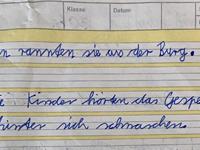 Klasse
Datum
n rannten sie aus der Burg.
e Kinder hörten das Gespe
hinter sich schnaschen